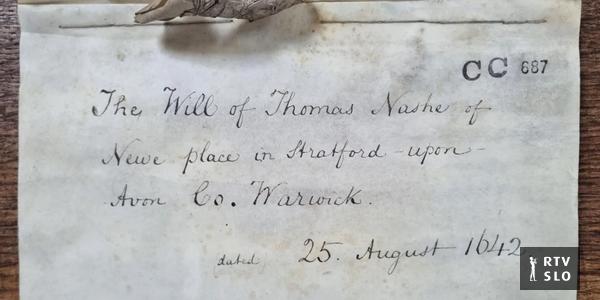 CC 687
The Will of Thomas Nashe of
Newe place in Stratford-upon-
Avon Co. Warwick.
dated 25. August 1642
RTV
SLO